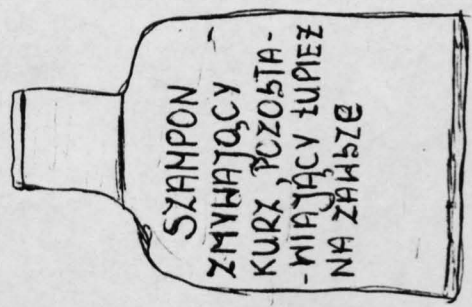 SZAMPON
ZMYWAJĄCY
KURZ, PCZOSTA-
-WIAJĄCY ŁUPIEŻ
NA ZAWSZE